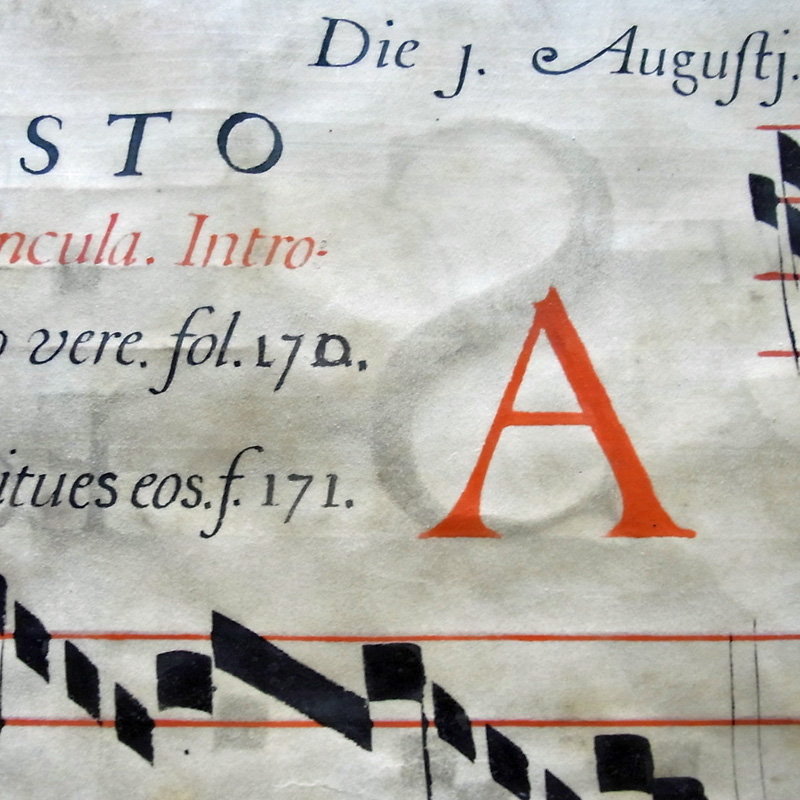 Die j. Augustj.
STO
ncula. Intro-
o vere. fol. 170.
itues eos. f. 171.
A